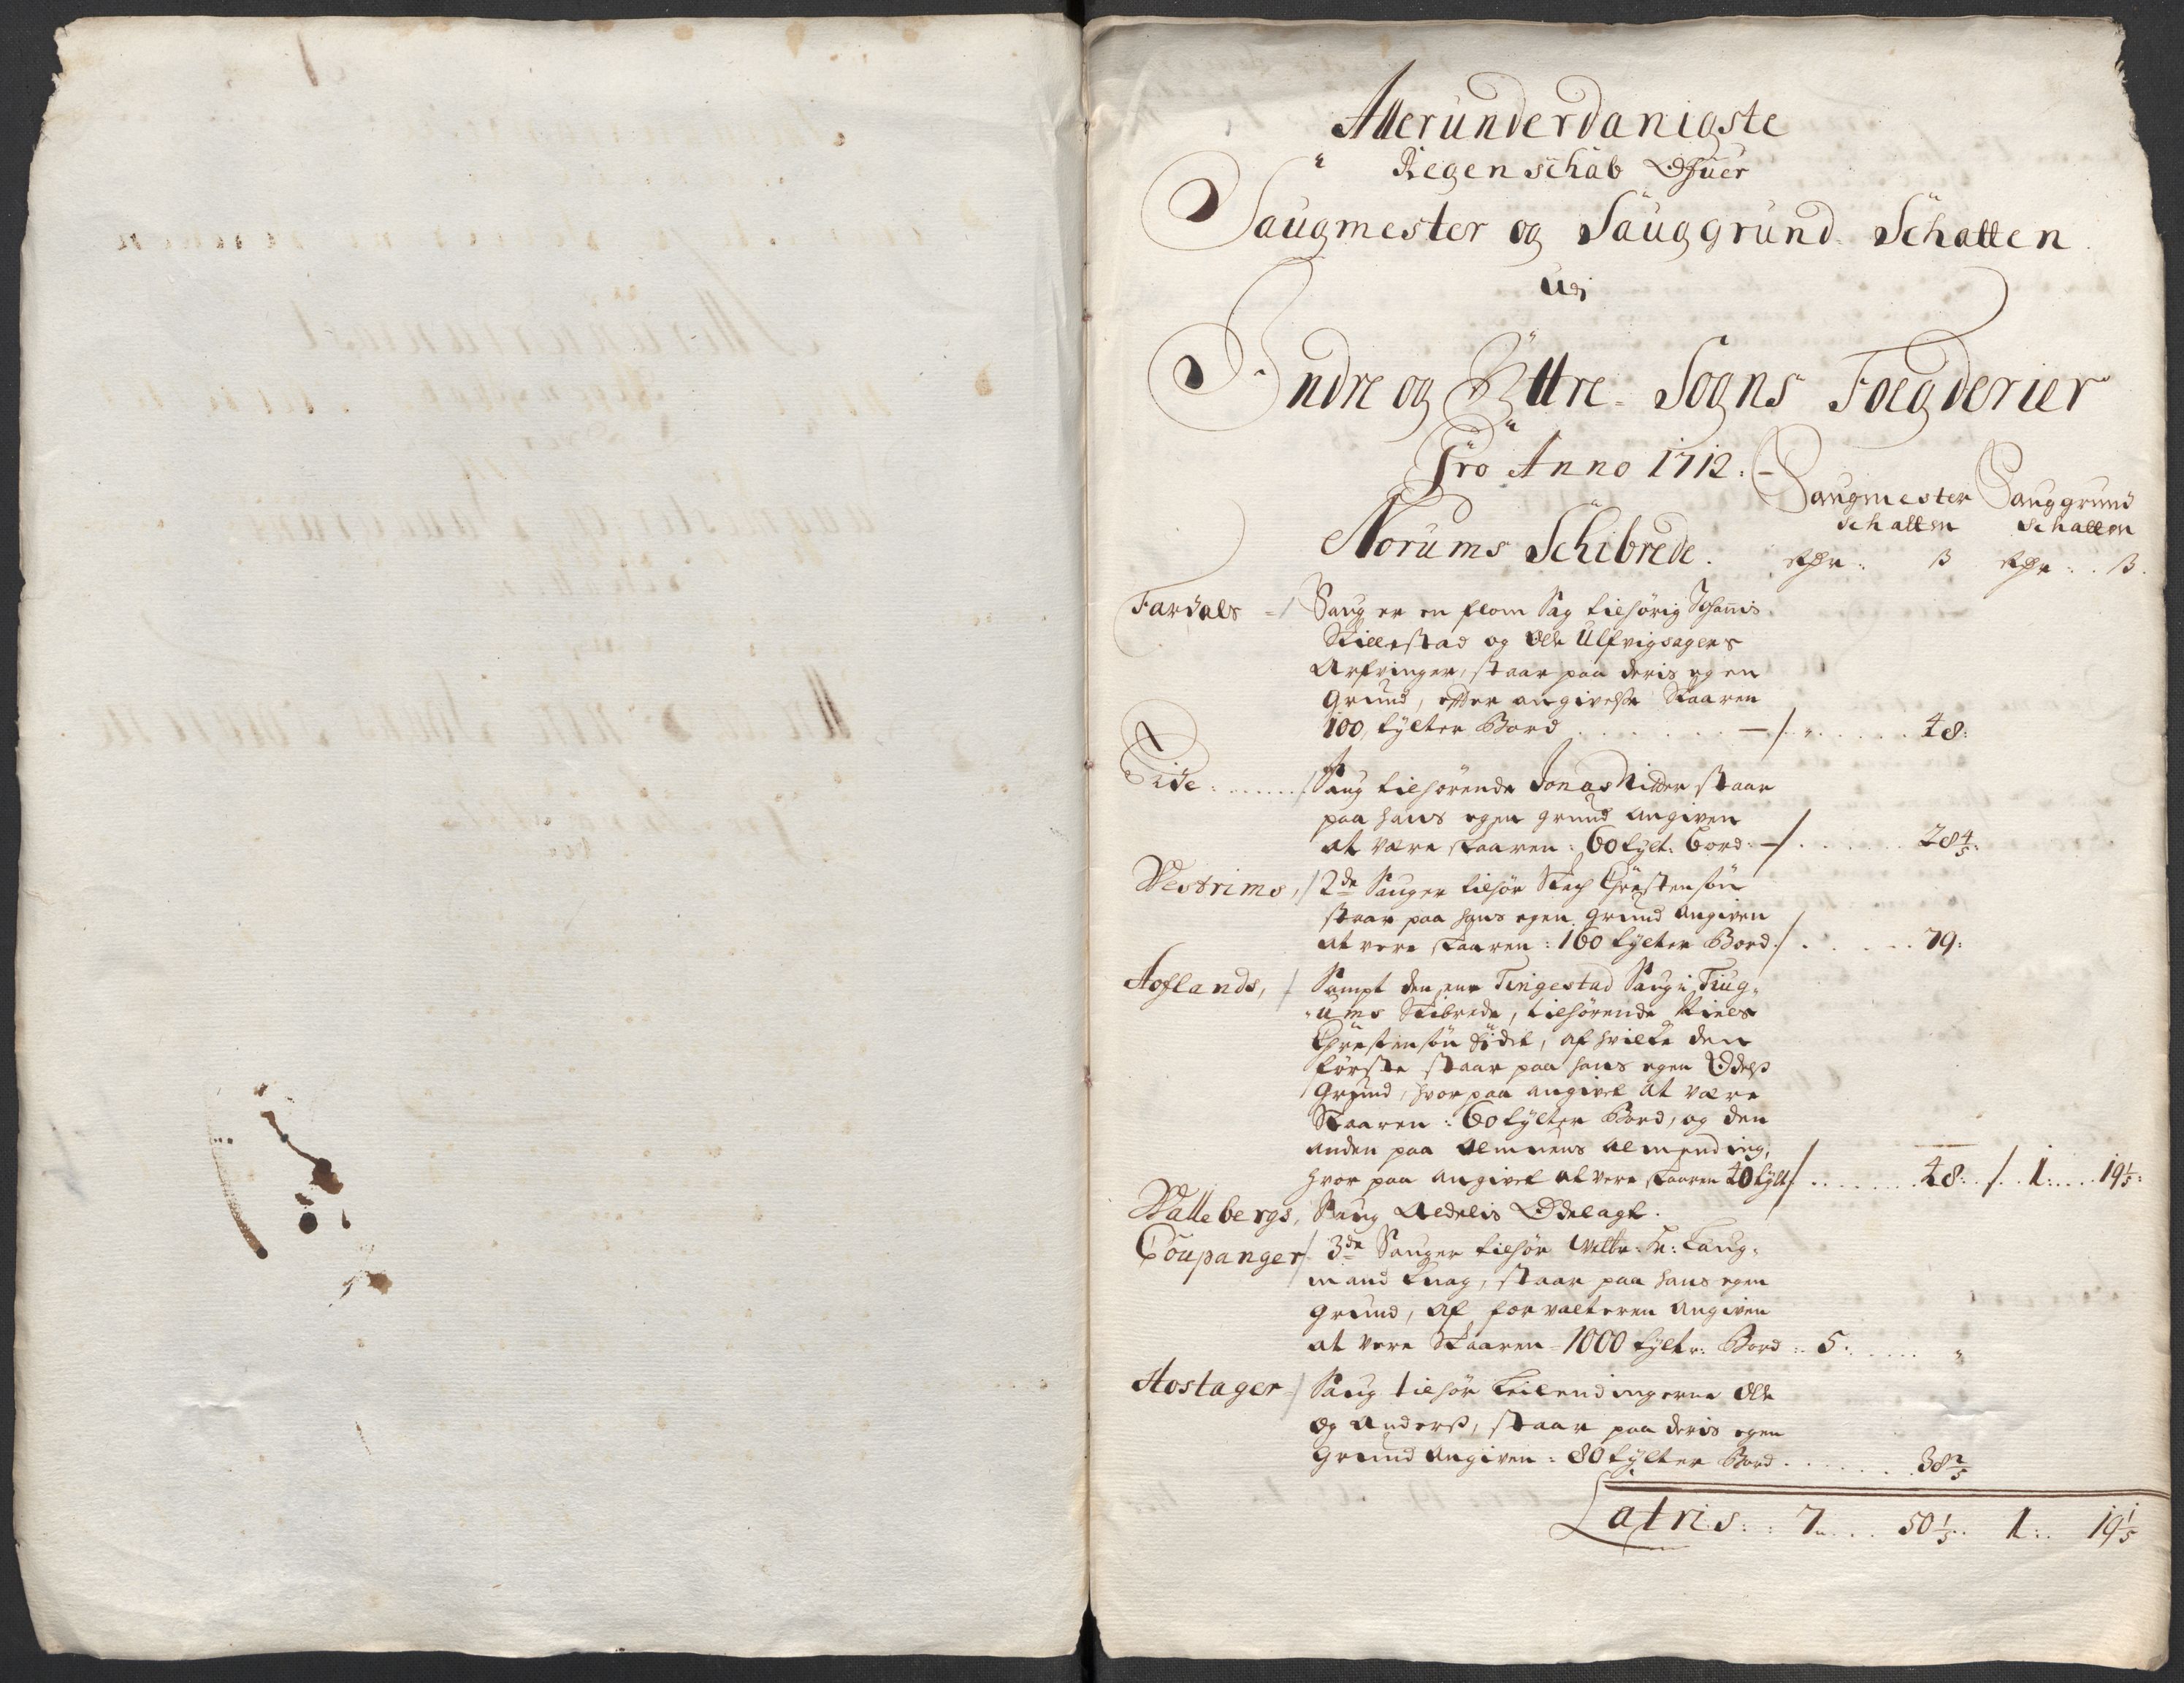 Allerunderdanigste
Regenschab Ofuer
Saugmester og Sauggrund Schatten
Udi
Indre og Yttre Sogns Foegderier
Pro Anno 1712.
Saugmester Sauggrund
schatten schatten
Norums Schibrede. Rdr: ß Rdr: ß.
Fardals Saug er en flom Sag tilhørig Johannis
Stillestad og Olle Ulfvigsagers
Arfvinger, staar paa deris egen
Grund, efter angivelse Skaaren
100 tylter Bord 48:
Eide Saug tilhørende Jonas Nitter staar
paa hans egen grund angiven
at være skaaren: 60 tylt: bord. 28 4/5:
Westrims, 2de Sauger tilhør Christensøn
staar paa hans egen grund angiven
at vere skaaren: 160 tylter Bord 79:
Aoflands, Sampt den ene Tingestad Saug i Tiug-
ums Skibrede, tilhørende Niels
Christensøn, af hvilke den
første staar paa hans egen Odels
Grund, hvorpaa angivet at være
Skaaren: 60 tylter Bord, og den
anden paa almuens almending,
hvor paa angivet at vere skaaren 40 tylt 48: 1: 19 1/5:
Wallebergs, Saug aldelis Ødelagt.
Coupanger 3de Sauger tilhør Laug-
mand Knag, staar paa hans egen
grund, af forvalteren angiven
at vere Skaaren 1000 tylter: Bord: 5. "
Aostager Saug tilhør Leilendingerne Olle
og Anders, staar paa deris egen
Grund angiven: 80 tylter Bord 38 2/5
Latris: 7 50 1/5 1: 19 1/5